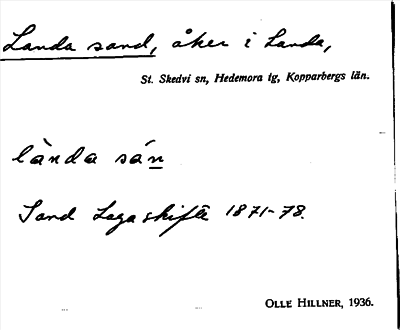 Landa sand, åker i Landa,
St. Skedvi sn, Hedemora tg, Kopparbergs län.
lànda sá̀n
Sand Laga skifte 1871-78.
OLLE HILLNER, 1936.